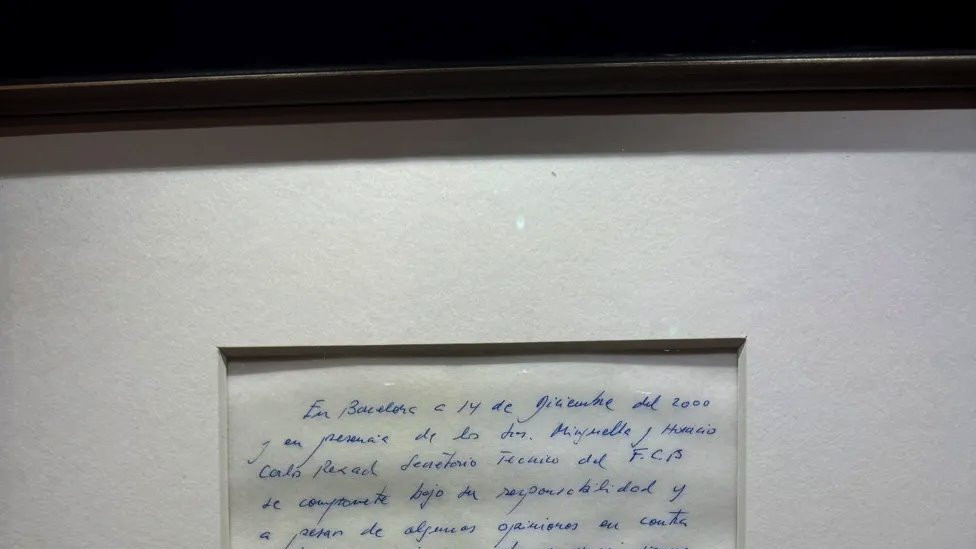 En Barcelona a 14 de Diciembre del 2000
y en presencia de los Srs. Minguella y Horacio
Carlos Rexach Secretario Tecnico del F.C.B
se compromete bajo su responsabilidad y
a pesar de algunas opiniones en contra